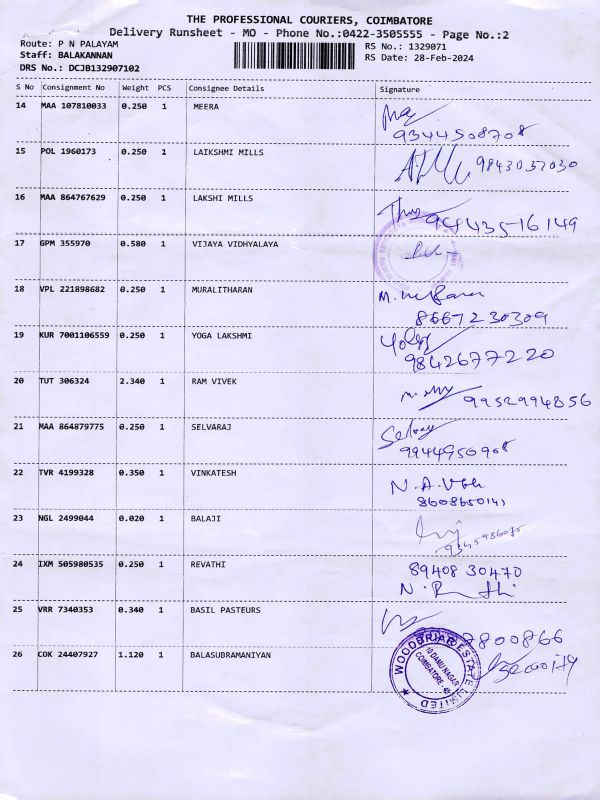 THE PROFESSIONAL COURIERS, COIMBATORE
Delivery Runsheet - MO - Phone No.:0422-3505555 - Page No.:2
Route: P N PALAYAM RS No.: 1329071
Staff: BALAKANNAN RS Date: 28-Feb-2024
DRS No.: DCJB132907102
S No Consignment No Weight PCS Consignee Details Signature
14 MAA 107810033 0.250 1 MEERA
9344508708
15 POL 1960173 0.250 1 LAIKSHMI MILLS 9843032030
16 MAA 864767629 0.250 1 LAKSHI MILLS
9443516149
17 GPM 355970 0.580 1 VIJAYA VIDHYALAYA
18 VPL 221898682 0.250 1 MURALITHARAN
8667230309
19 KUR 7001106559 0.250 1 YOGA LAKSHMI
9842677220
20 TUT 306324 2.340 1 RAM VIVEK 9952994856
21 MAA 864879775 0.250 1 SELVARAJ Selvaraj
9944950908
22 TVR 4199328 0.350 1 VINKATESH
8608650141
23 NGL 2499044 0.020 1 BALAJI
24 IXM 505980535 0.250 1 REVATHI 89408 30470
25 VRR 7340353 0.340 1 BASIL PASTEURS
26 COK 24407927 1.120 1 BALASUBRAMANIYAN
WOODBRIAR ESTATE LIMITED
10 DAMU NAGAR
COIMBATORE - 45